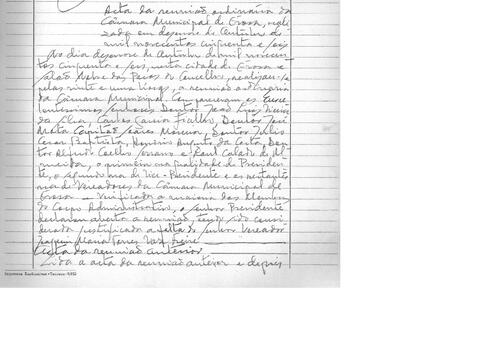 Acta da reunião ordinária da
Câmara Municipal de Évora, reali-
zada em dezanove de Outubro de
mil novecentos cinquenta e seis
No dia dezanove de Outubro de mil novecen-
tos cinquenta e seis, nesta cidade de Évora e
salão Nobre dos Paços do Concelho, realizou-se
pelas vinte e uma horas, a reunião ordinária
da Câmara Municipal. Compareceram os Excel-
lentissimos senhores Doutor João Luís
da Silva, Carlos Fialho, Doutor José
Mata, Capitão Moreno, Doutor Júlio
Cesar Baptista, Augusto da Costa, Dou-
tor Coelho e Raul Calado de Al-
meida, o primeiro na qualidade de Presiden-
te, o segundo na de Vice-Presidente e os restantes
na de Vereadores da Câmara Municipal de
Évora — Verificada a maioria dos Membros
do Corpo Administrativo, o senhor Presidente
declarou aberta a reunião, tendo sido consi-
derada justificada a falta do senhor Vereador
Joaquim Maria Torres Vaz Freire
Acta da reunião anterior
Lida a acta da reunião anterior e depois